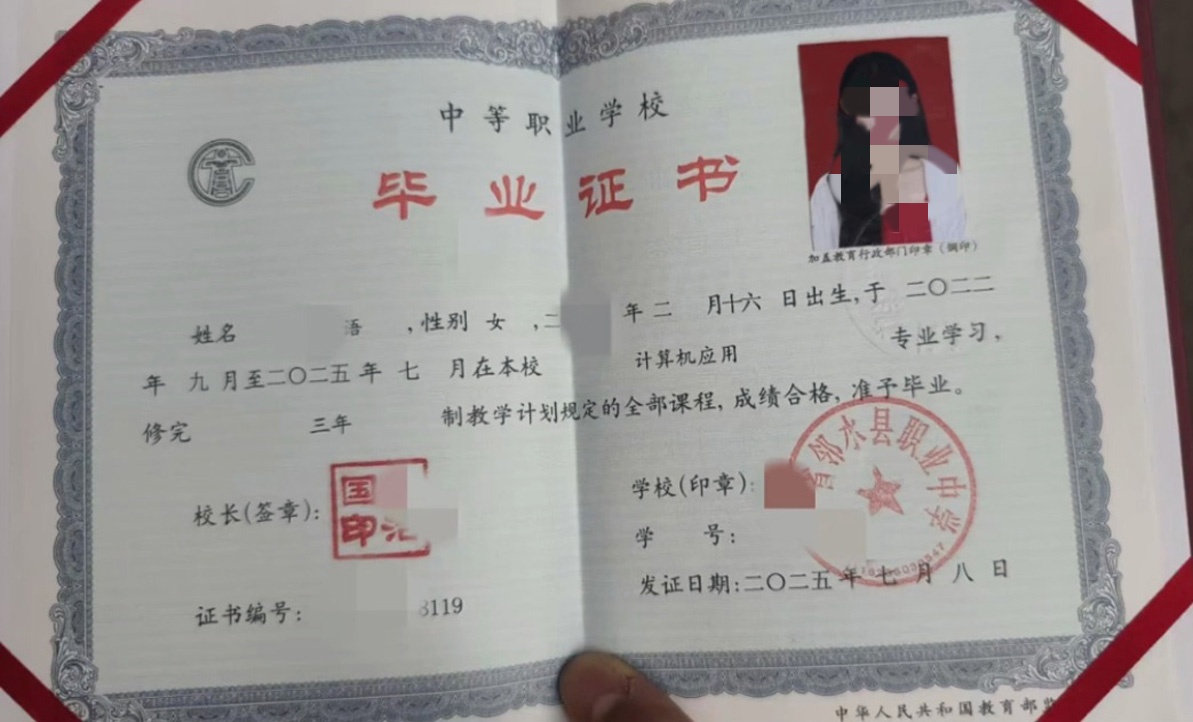 中等职业学校
毕业证书
加盖教育行政部门印章（钢印）
姓名 语 ,性别 女 ,二 年 二 月十六 日出生,于 二〇二二
年 九 月至二〇二五 年 七 月在本校 计算机应用 专业学习,
修完 三年 制教学计划规定的全部课程,成绩合格,准予毕业。
校长(签章):
国
印
学校(印章):
省邻水县职业中学
学 号:
发证日期:二〇二五 年 七 月 八 日
证书编号: 8119
中华人民共和国教育部监